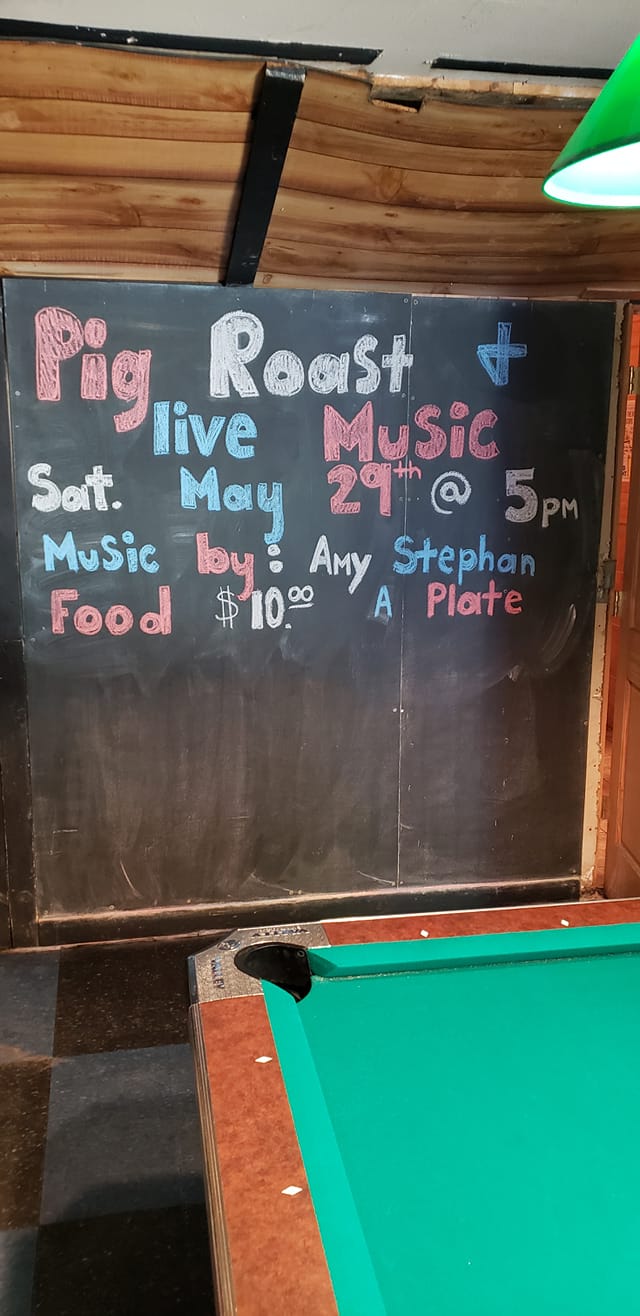 Pig Roast +
live Music
Sat. May 29th @ 5pm
Music by: Amy Stephan
Food $10.00 A Plate
VALLEY